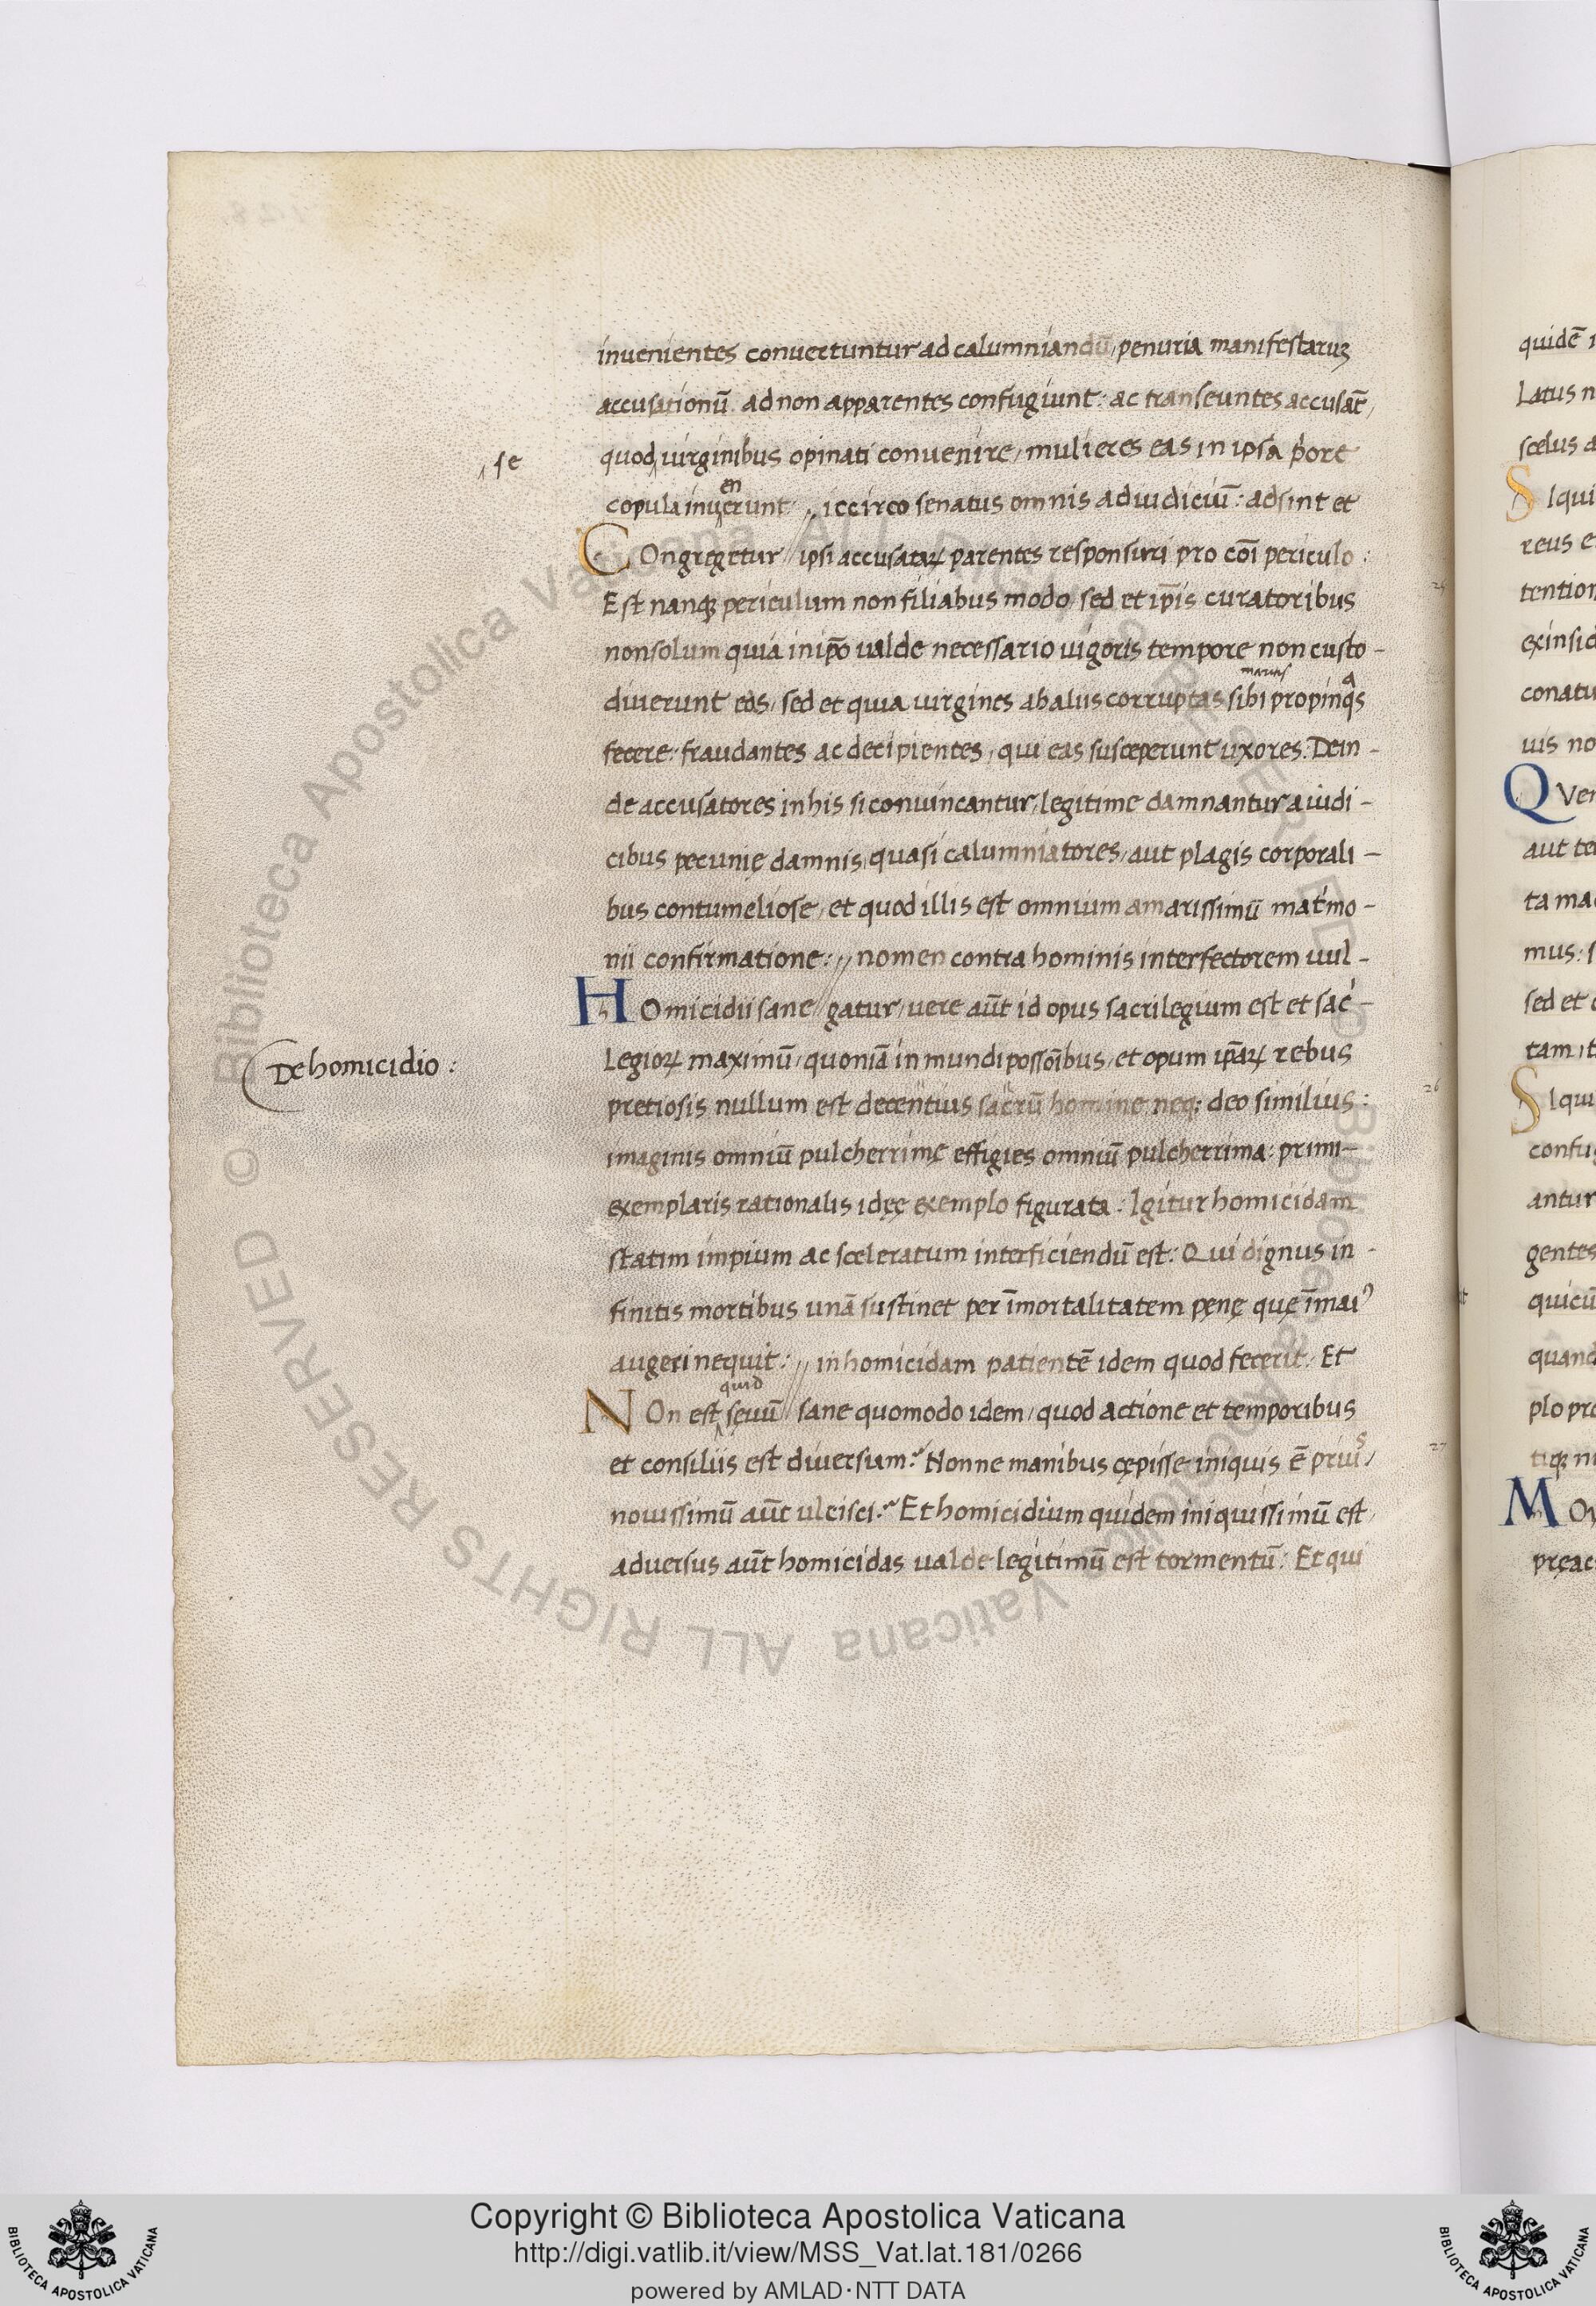 inuenientes conuertuntur ad calumniandū, penuria manifestaruʒ
accusationū ad non apparentes confugiunt: ac transeuntes accusāt,
se
quod uirginibus opinati conuenire, mulieres eas in ipsa
en
copula inuerunt iccirco senatus omnis ad iudiciū: adsint et
COngregetur // ipsi accusataꝝ parentes responsuri pro cōi periculo:
Est nanqʒ periculum non filiabus modo, sed et ip̄is curatoribus
non solum quia in ip̄o ualde necessario uigoris tempore non custo-
maritis a
diuerunt eas, sed et quia uirgines ab aliis corruptas sibi propinqs
fecere: fraudantes ac decipientes, qui eas susceperunt uxores: Dein-
de accusatores in his si conuincantur, legitime damnantur a iudi-
cibus pecunię damnis, quasi calumniatores, aut plagis corporali-
bus contumeliose, et quod illis est omnium amarissimū matimo-
nii confirmatione: // nomen contra hominis interfectorem uul-
HOmicidii sane // gatur, uere aūt id opus sacrilegium est et sac-
De homicidio:
legioꝝ maximū, quoniā in mundi possōibus, et opum ip̄aꝝ rebus
pretiosis nullum est decentius sacrū homine neqʒ deo similius:
imaginis omniū pulcherrimę effigies omniū pulcherrima: primi-
exemplaris rationalis idęę exemplo figurata: Igitur homicidam
statim impium ac sceleratum interficiendū est: Qui dignus in-
finitis mortibus unā sustinet per īmortalitatem pęnę quę
augeri nequit: // in homicidam patientē idem quod fecerit. Et
quid
NOn est seuū // sane quomodo idem, quod actione et temporibus
et consiliis est diuersum? Nonne manibus cępisse iniquis ē prius,
nouissimū aūt ulcisci? Et homicidium quidem iniquissimū est,
aduersus aūt homicidas ualde legitimū est tormentū: Et qui
quidē
Latus n
scelus a
SIqui
reus e
tention
ex insid
conatu
uis no
QVer
aut te
ta ma
mus: s
sed et
tam, it
SIqui
confug
antur
gentes
quicū
quand
plo pro
tiqʒ ni
MOy
pręac
26
27
© Biblioteca Apostolica Vaticana ALL RIGHTS RESERVED © Biblioteca Apostolica Vaticana ALL RIGHTS RESERVED
Copyright © Biblioteca Apostolica Vaticana
http://digi.vatlib.it/view/MSS_Vat.lat.181/0266
powered by AMLAD·NTT DATA
BIBLIOTECA APOSTOLICA VATICANA
BIBLIOTECA APOSTOLICA VATICANA